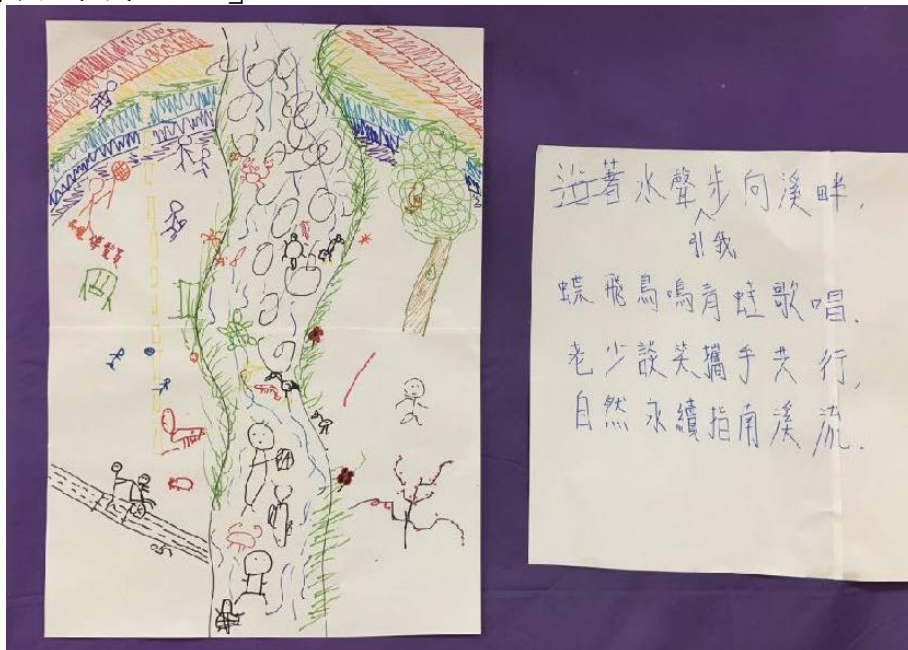 著水聲步向溪畔,
引我
蝶飛鳥鳴青蛙歌唱.
老少談笑攜手共行,
自然永續指南溪流.